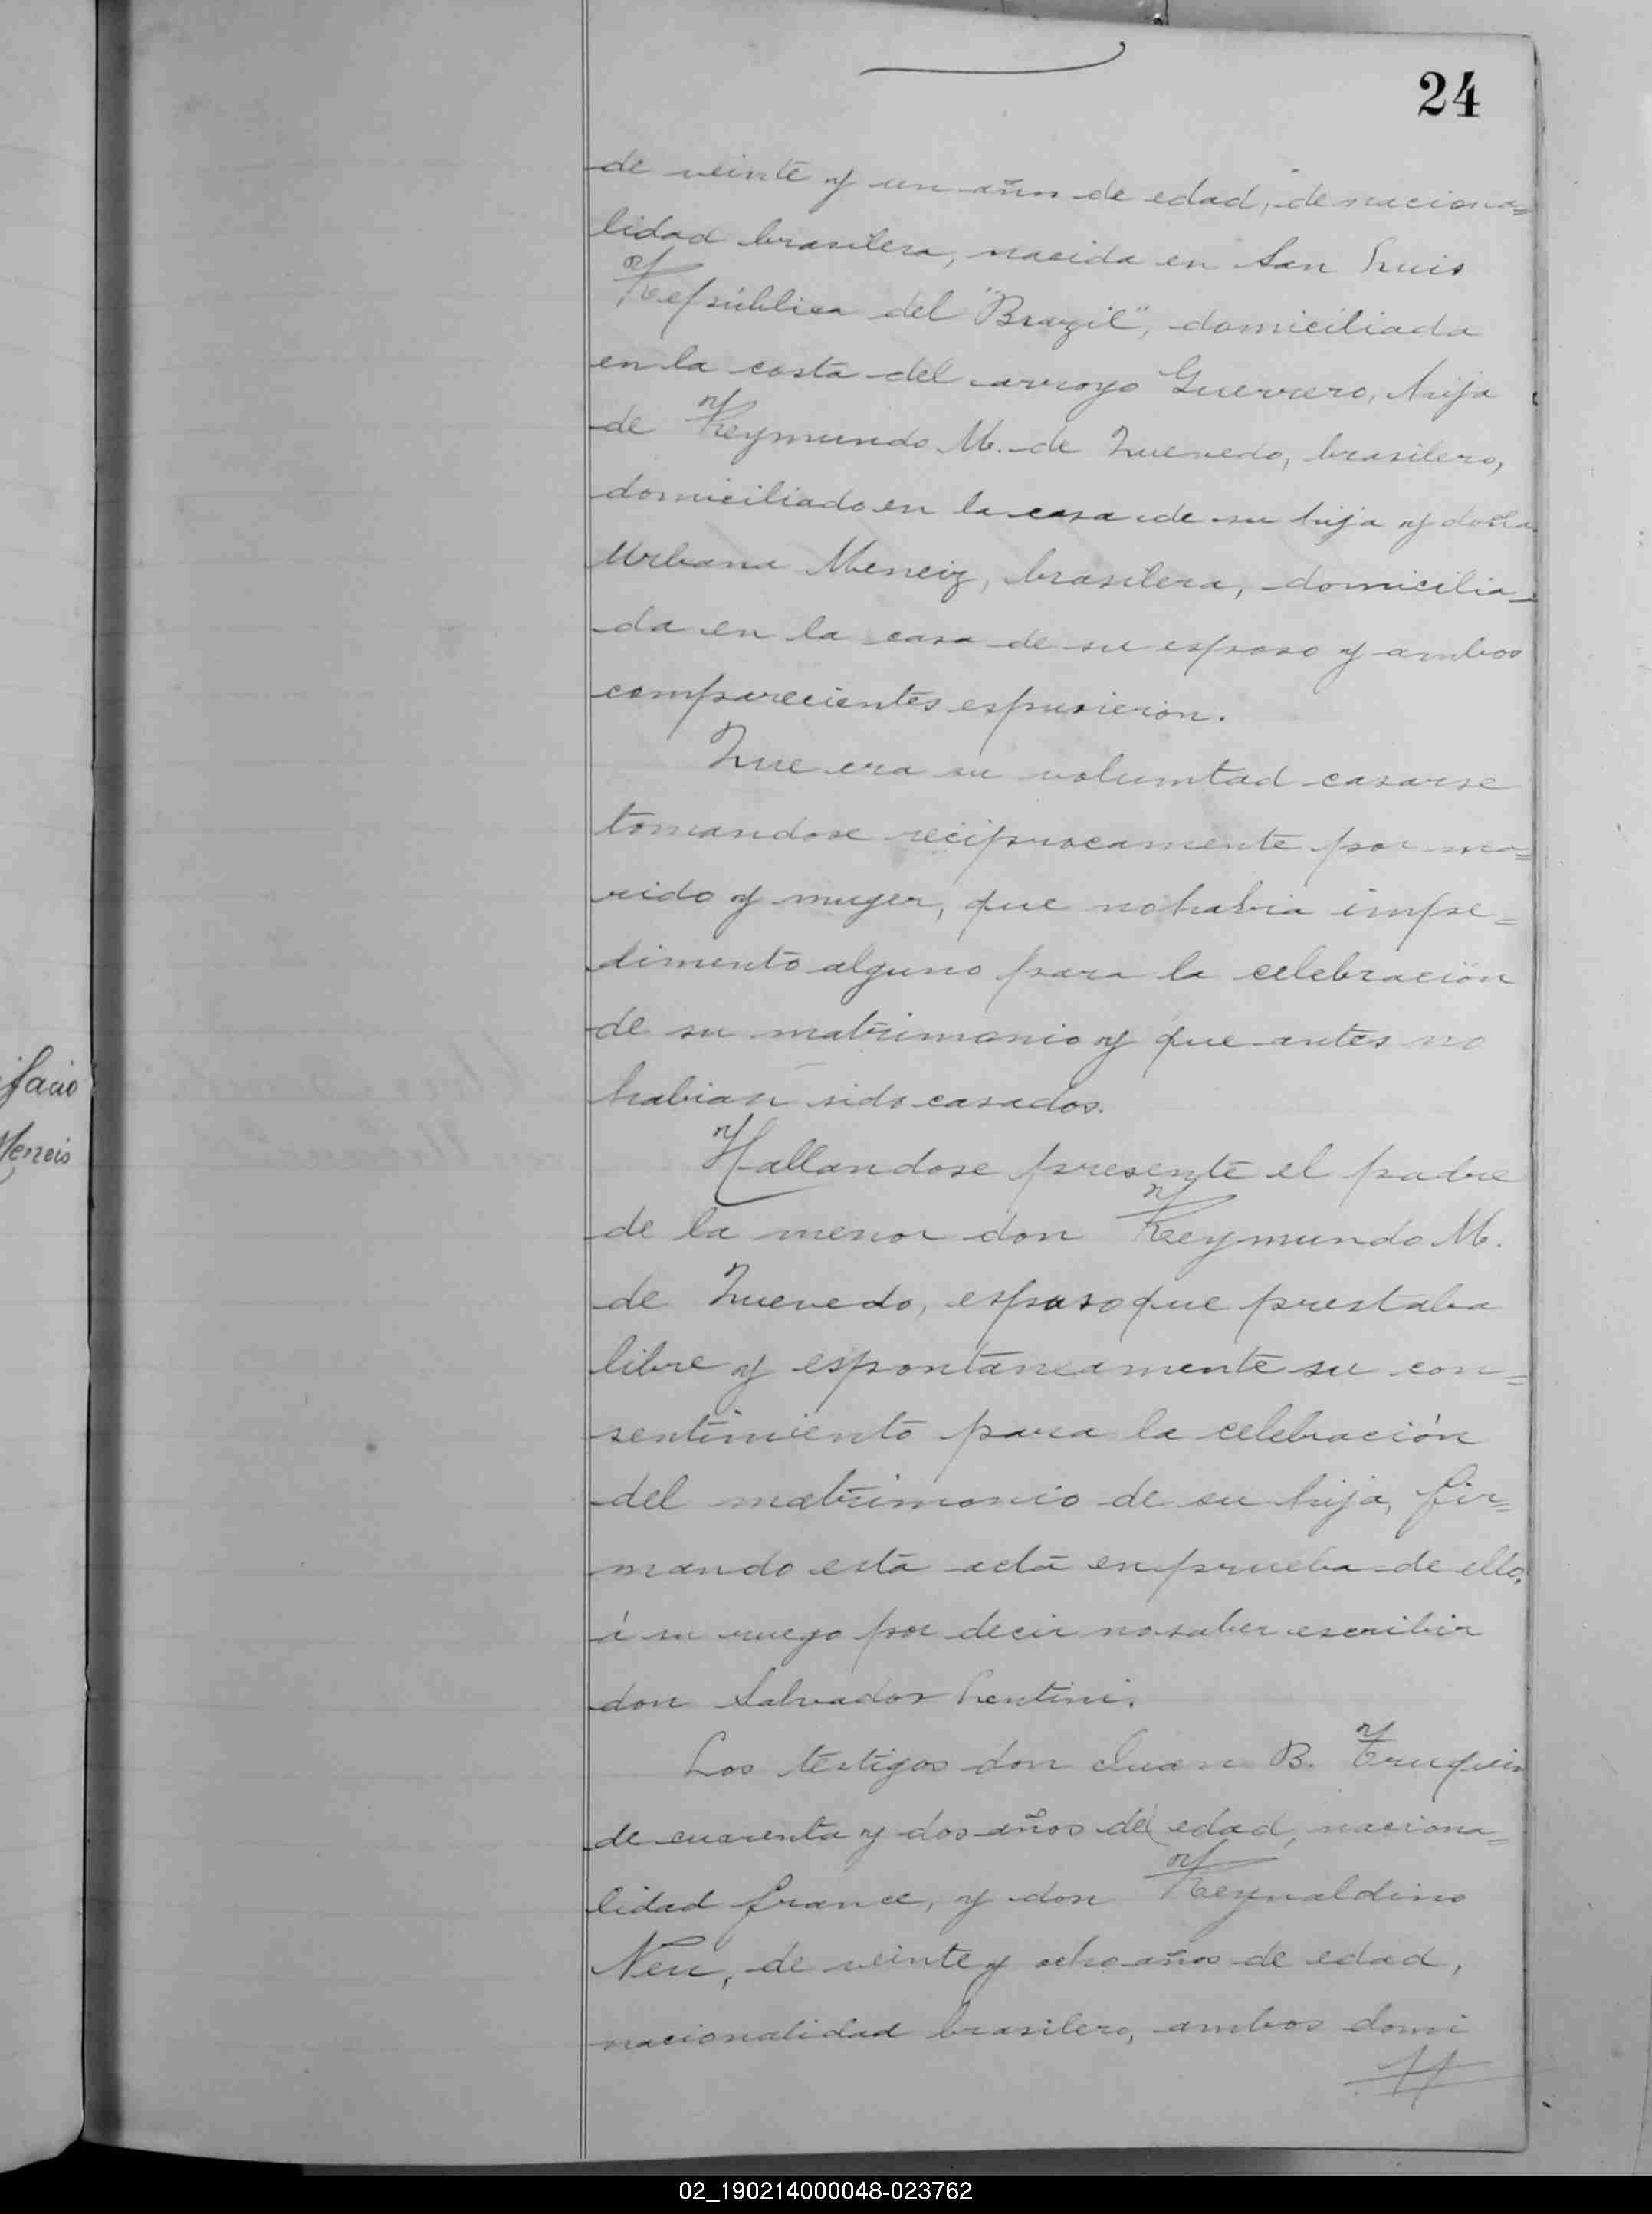 24
de veinte y un años de edad, de naciona=
lidad brasilera, nacida en San Luis
República del "Brazil", domiciliada
en la costa del arroyo Guerrero, hija
de Reymundo M. de Quevedo, brasilero,
domiciliado en la casa de su hija y doña
Urbana Meneiz, brasilera, domicilia-
da en la casa de su esposo y ambos
comparecientes espusieron.
Que era su volumtad casarse
tomandose reciprocamente por ma=
rido y muger, que no habia impe=
dimento alguno para la celebración
de su matrimonio y que antes no
habian sido casados.
Hallandose presente el padre
de la menor don Reymundo M.
de Quevedo, espuso que prestaba
libre y espontaneamente su con=
sentimiento para la celebración
del matrimonio de su hija, fir=
mando esta acta en prueba de ello,
á su ruego por decir no saber escribir
don Salvador Lentini.
Los testigos don Juan B. Truquin
de cuarenta y dos años de edad, naciona=
lidad france, y don Reynaldino
Neu, de veinte y ocho años de edad,
nacionalidad brasilero, ambos domi
facio
Meneis
02_190214000048-023762